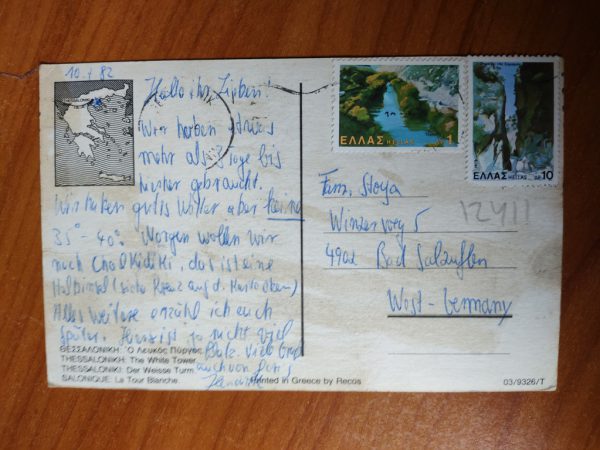 10. 82
Hallo ihr Lieben!
Wir haben etwas
mehr als Tage bis
hierher gebraucht.
Wir haben gutes Wetter aber keine
35° - 40°. Morgen wollen wir
nach Chalkidiki, das ist eine
Halbinsel (siehe Kreuz auf d. Karte oben)
Alles weitere erzähl ich euch
später. Hier ist ja nicht viel
Platz. Viele Grüße
auch von
ΘΕΣΣΑΛΟΝΙΚΗ: Ὁ Λευκός Πύργος.
THESSALONIKH: The White Tower.
THESSALONIKI: Der Weisse Turm.
SALONIQUE: La Tour Blanche.
Printed in Greece by Recos
03/9326/T
ΕΛΛΑΣ HELLAS 1
ΕΛΛΑΣ HELLAS 10
Fam. Stoya
Winzerweg 5
4902 Bad Salzuflen
West-Germany
12411